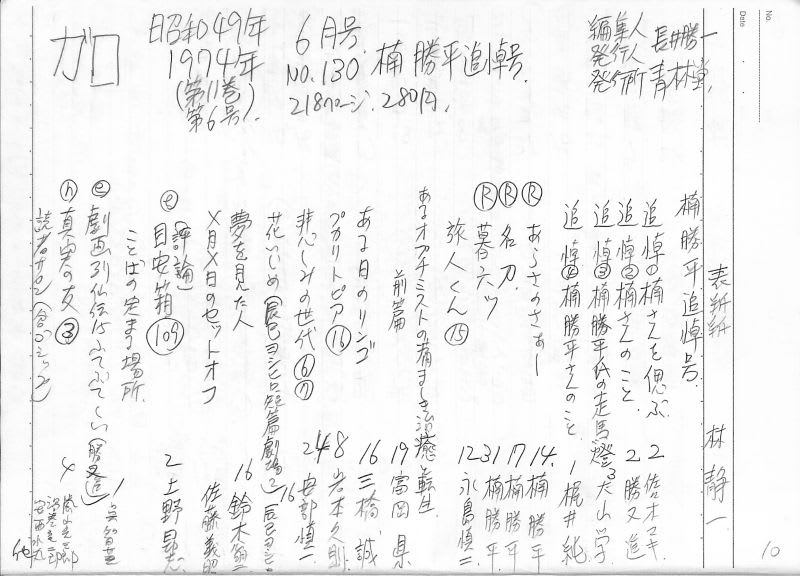 No.
Date
ガロ
昭和49年
1974年
(第11巻
第6号).
6月号.
NO.130.
218ページ. 280円.
楠 勝平追悼号.
編集人
発行人 長井勝一
発行所 青林堂.
表 林 静一
楠勝平追悼号.
追悼①楠さんを偲ぶ 2 佐々木マキ
追悼②楠さんのこと. 2 勝又 進
追悼③楠勝平氏の走馬燈 3 大山 学
追悼④楠勝平さんのこと 1 梶井 純
Ⓡ あらさのさぁー 14. 楠 勝平
Ⓡ 名刀. 17 楠 勝平
Ⓡ 暮六ツ 31 楠 勝平
旅人くん ⑮ 12 永島慎二
あるオプチミストの痛ましき治癒と転生. 前篇 19 富岡 県
ある日のリンゴ 16 三橋 誠
プカリトピア ⑯ 8 岩本久則
悲しみの世代 ⑥⑦ 24 安部慎一
花いじめ (辰巳ヨシヒロ短篇劇場2) 16 辰巳ヨシヒロ
夢を見た人 16 鈴木翁二
X月X日のセットオフ 佐藤義昭
ⓔ 目安箱 (109) 2 上野昂志
(評論)
ことばの定まる場所.
ⓔ 劇画列仙伝 (勝又進) 1 呉智英
ⓗ 真実の友 ③ 4
読者サロン
10